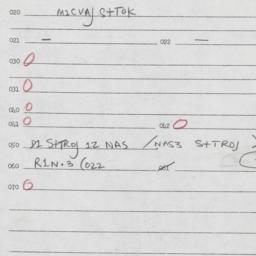 020 MICVAJ S+TOK
021 — 022 —
030 0
031 0
040 0
041 0 042 0
050 D1 S+TROJ 12 NAS / NAS3 S+TROJ
060 R1N.3 (022
070 0